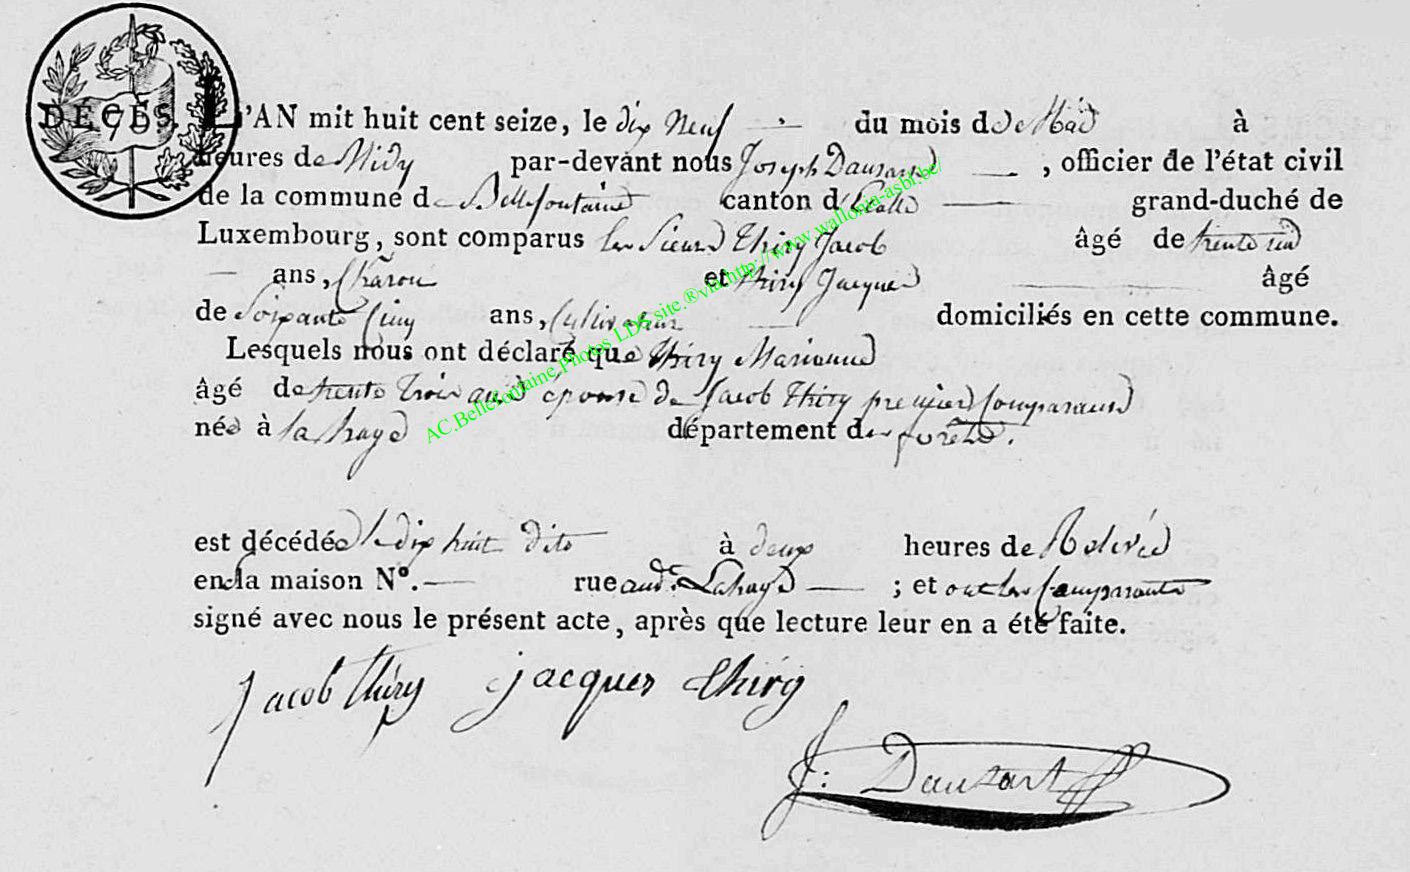 DÉCÈS. L'AN mit huit cent seize, le dix Neuf du mois de Mai à
heures de Midy par-devant nous Joseph Dausart, officier de l'état civil
de la commune de Bellefontaine canton d'Étalle grand-duché de
Luxembourg, sont comparus les Sieurs Thiry Jacob âgé de trente six
ans, Charon et thiry Jacques âgé
de Soixante Cinq ans, Cultivateur domiciliés en cette commune.
Lesquels nous ont déclaré que Thiry Marianne
âgé de trente trois ans épouse de Jacob Thiry premier Comparant
née à la haye département des forêts.
est décédée le dix huit dito à deux heures de Relevée
en la maison N°. rue aud.t Lahaye ; et ont les Comparants
signé avec nous le présent acte, après que lecture leur en a été faite.
Jacob Thiry jacques thiry
J: Dausart
AC.Bellefontaine.Photos LDS site.®via http://www.wallonia-asbl.be/